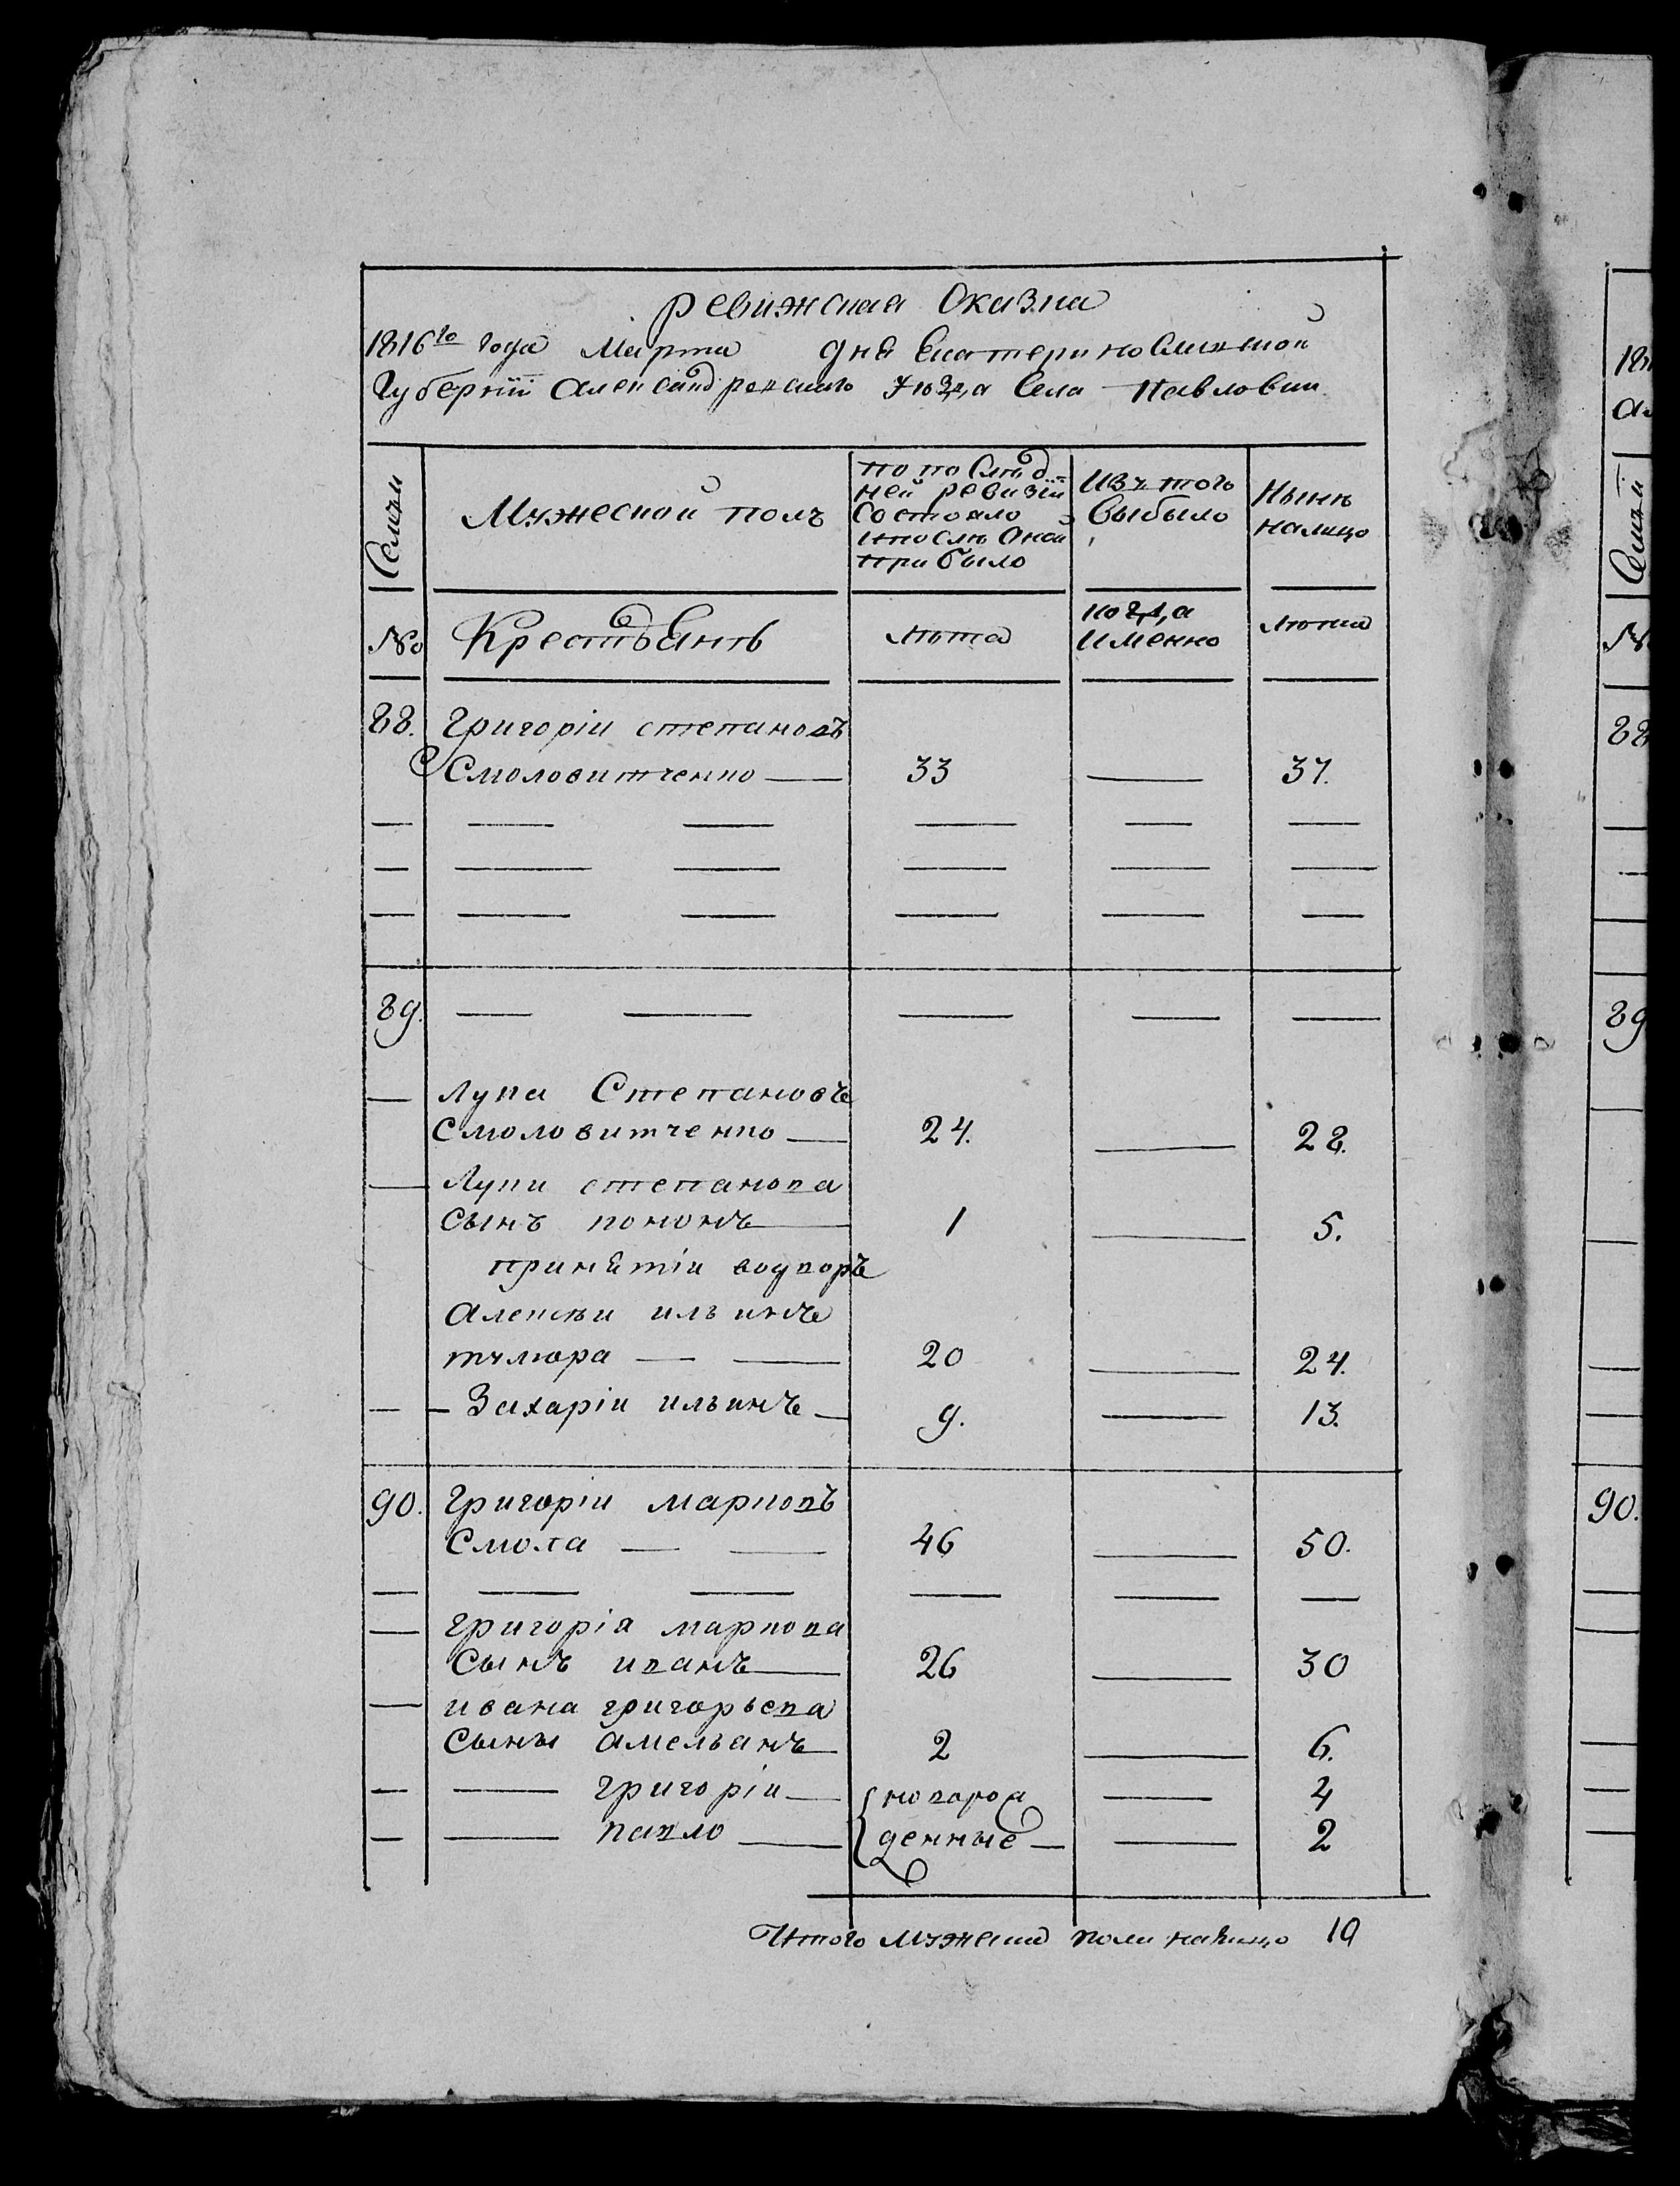 ревижская Сказка
1816го года Марта дня Екатеринославской
Губернїи Александревскаго уѣзда Села Павловки
Семьи
Мужеской полъ
по послѣд-
ней ревизіи
Состояло
ипослѣ оной
прибыло
Изъ того
выбыло
Нынѣ
налицо
№
Крестьянъ
лѣта
когда
именно
лѣта
88. Григоріи степановъ
Смоловитченко — 33 — 37.
89. — — — — —
— Лука Степановъ
Смоловитченко — 24. — 28.
— Луки степанова
Сынъ кононъ — 1 — 5.
принятіи водворъ
Алексѣи ильинъ
тчлюра — — 20 — 24.
— — Захаріи ильинъ — 9. — 13.
90. Григоріи марковъ
Смола — — 46 — 50.
— — — — — —
— григорія маркова
Сынъ иванъ — 26 — 30
— ивана григорьева
Сыны Амельянъ — 2 — 6.
— — григоріи — новорож — 4
— — павло — денные — — 2
Итого мужеска пола налицо 10
18
А
Семьи
№
88
89
90.